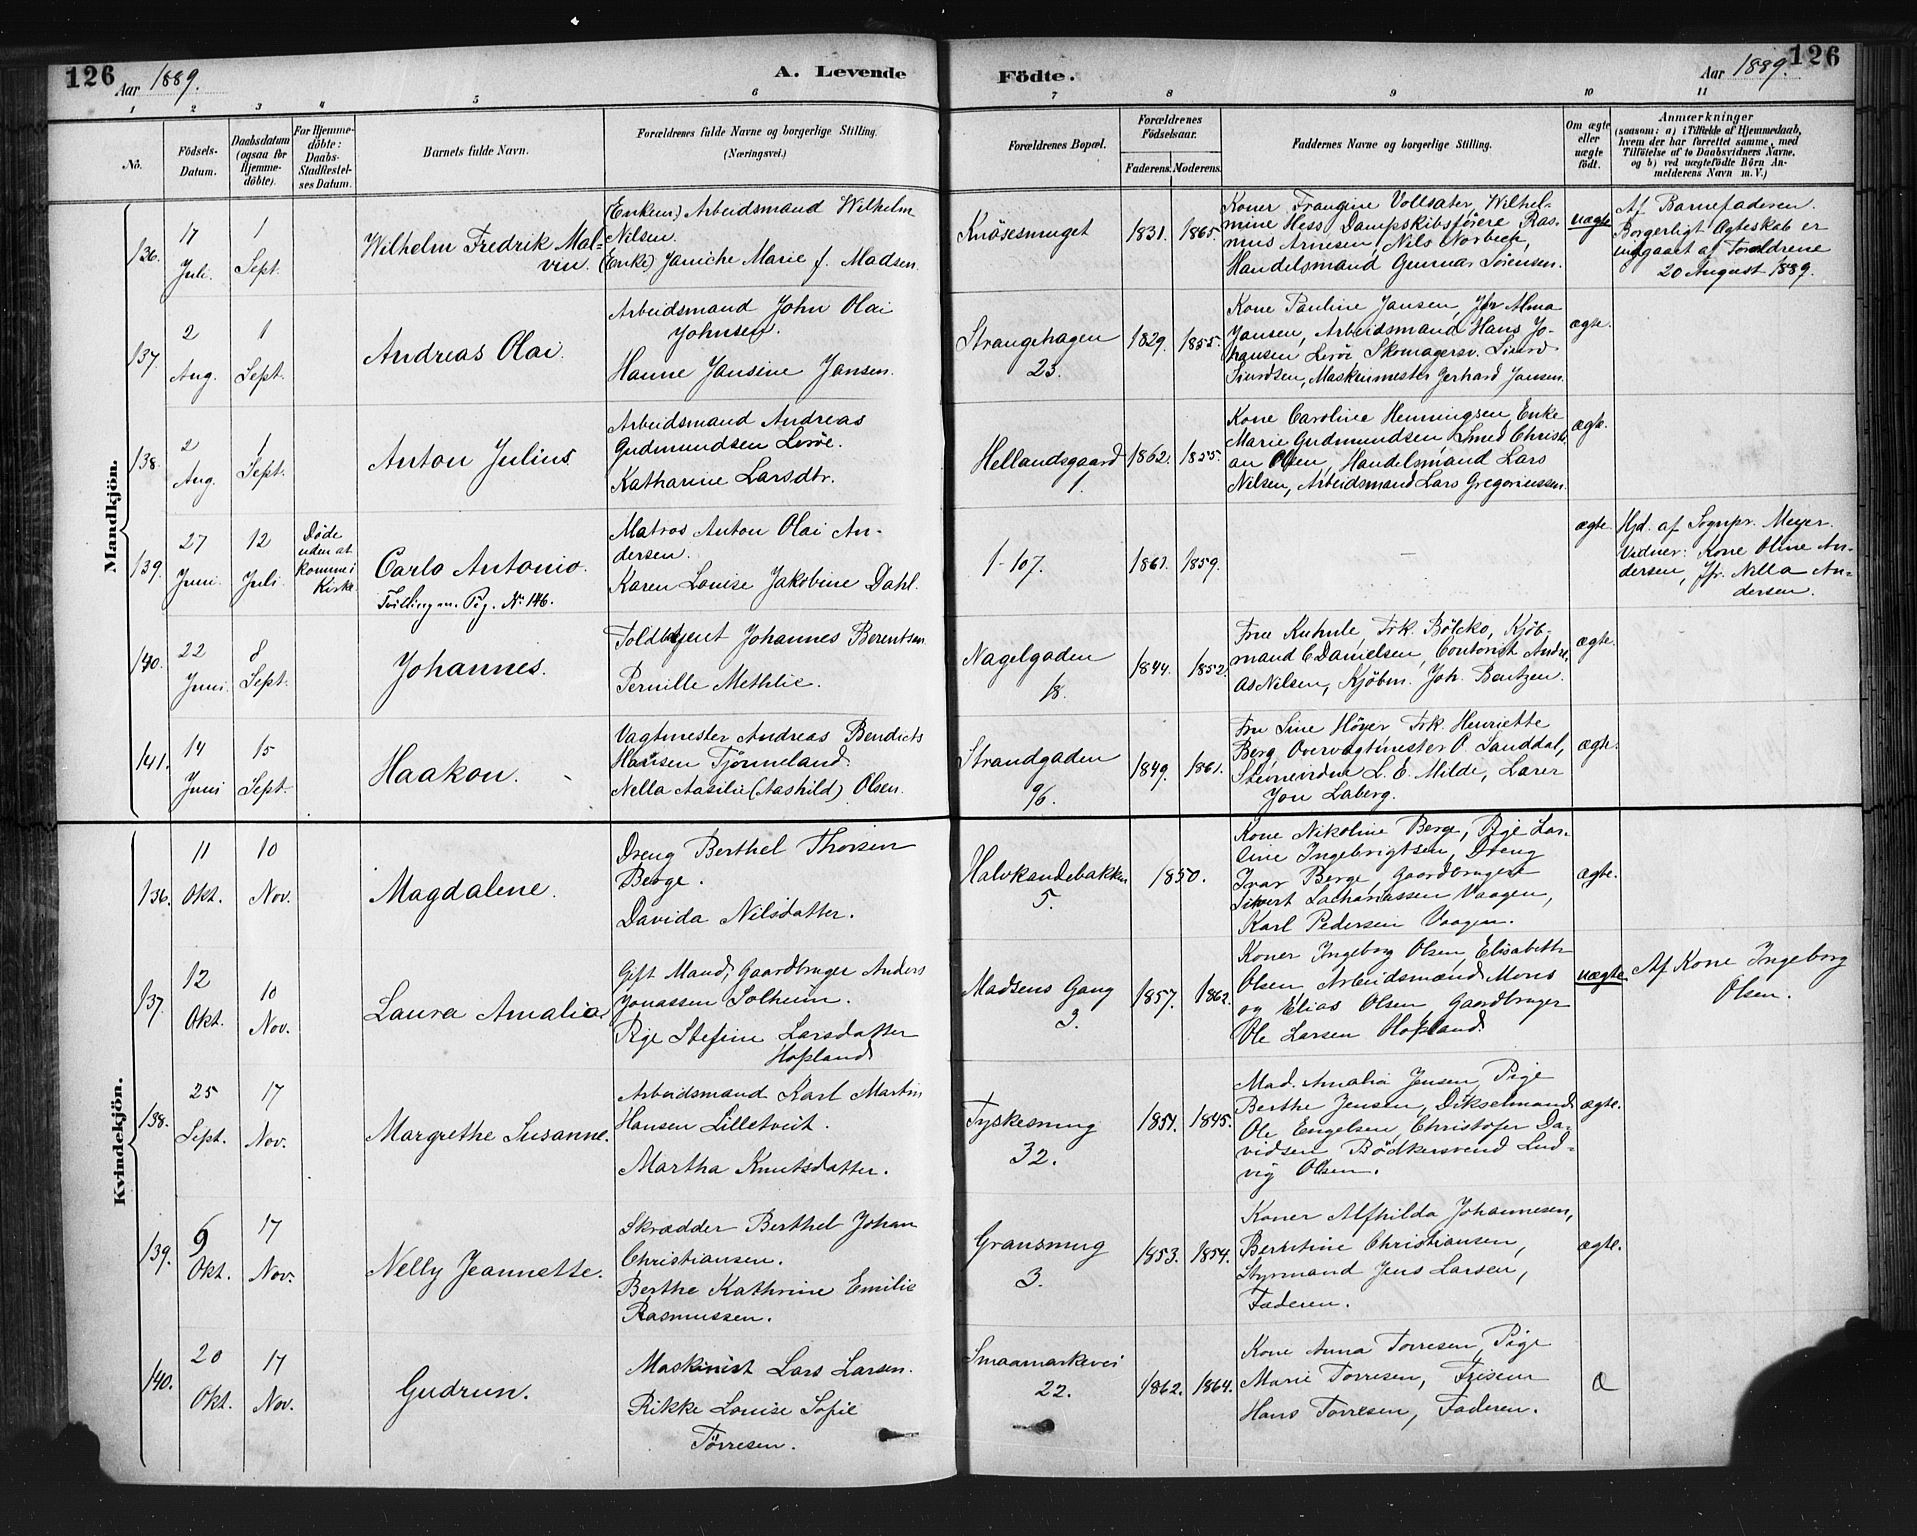 126
Aar 1889.
A. Levende
Födte.
Aar 1889.
126
1 2 3 4 5 6 7 8 9 10 11
No.
Födsels-
Datum.
Daabsdatum
(ogsaa for
Hjemme-
döbte).
For Hjemme-
döbte:
Daabs-
Stadfæstel-
ses Datum.
Barnets fulde Navn.
Forældrenes fulde Navne og borgerlige Stilling.
(Næringsvei.)
Forældrenes Bopæl.
Forældrenes
Födselsaar.
Faderens. Moderens.
Faddernes Navne og borgerlige Stilling.
Om ægte
eller
uægte
födt.
Anmærkninger
(saasom: a) i Tilfælde af Hjemmedaab,
hvem der har forrettet samme, med
Tilföielse af to Daabsvidners Navne,
og b) ved uægtefödte Börn An-
melderens Navn m. V.)
Mandkjön.
136.
17
Juli.
1
Sept.
Wilhelm Fredrik Mal-
vin.
(Enkem) Arbeidsmand Wilhelm
Nilsen.
(Enke) Janiche Marie f. Madsen.
Knösesmuget
1831. 1865.
Koner Frangine Vollsater, Wilhel-
mine Hess, Dampskibsförere Ras-
mus Arnesen, Nils Norbeck,
Handelsmand Gunnar Sørensen.
uægte
Af Barnefaderen.
Borgerligt Ægteskab er
indgaaet af Forældrene
20 August 1889.
137.
2
Aug.
1
Sept.
Andreas Olai.
Arbeidsmand John Olai
Johnsen.
Hanne Jansine Jansen.
Strangehagen
23.
1829. 1855.
Kone Pauline Jansen, Jfr Alma
Jansen, Arbeidsmand Hans Jo-
hansen Lerøe Skomagersv. Sivert
Sivertsen, Maskinmester Gerhard Jansen.
ægte.
138.
2
Aug.
1
Sept.
Anton Julius.
Arbeidsmand Andreas
Gudmundsen Lerøe.
Katharine Larsdtr.
Hellandsgaard
1.
1862. 1855.
Kone Caroline Henningsen, Enke
Marie Gudmundsen, Smed Christi-
an Olsen, Handelsmand Lars
Nilsen, Arbeidsmand Lars Gregoriussen.
ægte.
139.
27
Juni.
12
Juli.
Døde
uden at
komme i
Kirke.
Carlo Antonio.
Tvilling m. Pig. No 146.
Matros Anton Olai An-
dersen.
Karen Louise Jakobine Dahl.
1-107.
1861. 1859.
–
ægte.
Hjd. af Sognpr. Meyer.
Vidner: Kone Oline An-
dersen, Jfr. Nilla An-
dersen.
140.
22
Juni.
8
Sept.
Johannes.
Toldbetjent Johannes Berentsen
Pernille Methlie.
Nagelgaden
18.
1844. 1852.
Fru Kuhnle, Frk. Bölcko, Kjöb-
mand C Danielsen, Contorist Andre-
as Nilsen, Kjöbm. Joh. Bentzen.
ægte.
141.
14
Juni
15
Sept.
Haakon.
Vagtmester Andreas Bendicts
Hansen Tjönneland.
Nella Aasilie (Aashild) Olsen.
Strandgaden
96.
1849. 1861.
Fru Sine Höyer Frk. Henriette
Berg, Overvagtmester O. Sanddal,
Stevnevidne L. E. Milde, Lærer
Jon Laberg.
ægte.
Kvindekjön.
136.
11
Okt.
10
Nov.
Magdalene.
Dreng Berthel Thorsen
Berge.
Davida Nilsdatter.
Halvkandebakken
5.
1850.
Kone Nikoline Berge, Pige Lar-
sine Ingebrigtsen, Dreng
Ivar Berge, Gaardbrugere
Sivert Zachariassen Vaagen,
Karl Pedersen Vaagen.
ægte.
137.
12
Okt.
10
Nov.
Laura Amalia.
Gift Mand, Gaardbruger Anders
Jonassen Solheim.
Pige Stefine Larsdatter
Hopland
Madsens Gang
3.
1857. 1862.
Koner Ingeborg Olsen, Elisabeth
Olsen Arbeidsmænd Mons
og Elias Olsen, Gaardbruger
Ole Larsen Hopland.
uægte
Af Kone Ingeborg
Olsen.
138.
25
Sept.
17
Nov.
Margrethe Susanne.
Arbeidsmand Karl Martin
Hansen Lilletveit.
Martha Knutsdatter.
Tyskesmug
32.
1851. 1845.
Mad. Amalia Jensen, Pige
Berthe Jensen, Dikselmand
Ole Engelsen, Christofer Da-
vidsen, Bödkersvend Lud-
vig Olsen.
ægte.
139.
6
Okt.
17
Nov.
Nelly Jeannette.
Skrædder Berthel Johan
Christiansen.
Berthe Kathrine Emilie
Rasmussen.
Gransmug
3.
1853. 1854.
Koner Alfhilda Johannesen,
Berntine Christiansen,
Styrmand Jens Larsen,
Faderen.
ægte.
140.
20
Okt.
17
Nov.
Gudrun.
Maskinist Lars Larsen.
Rikke Louise Sofie
Törresen.
Smaamarkevei
22.
1862. 1864.
Kone Anna Torresen, Pige
Marie Torresen, Friseur
Hans Torresen, Faderen.
Æ